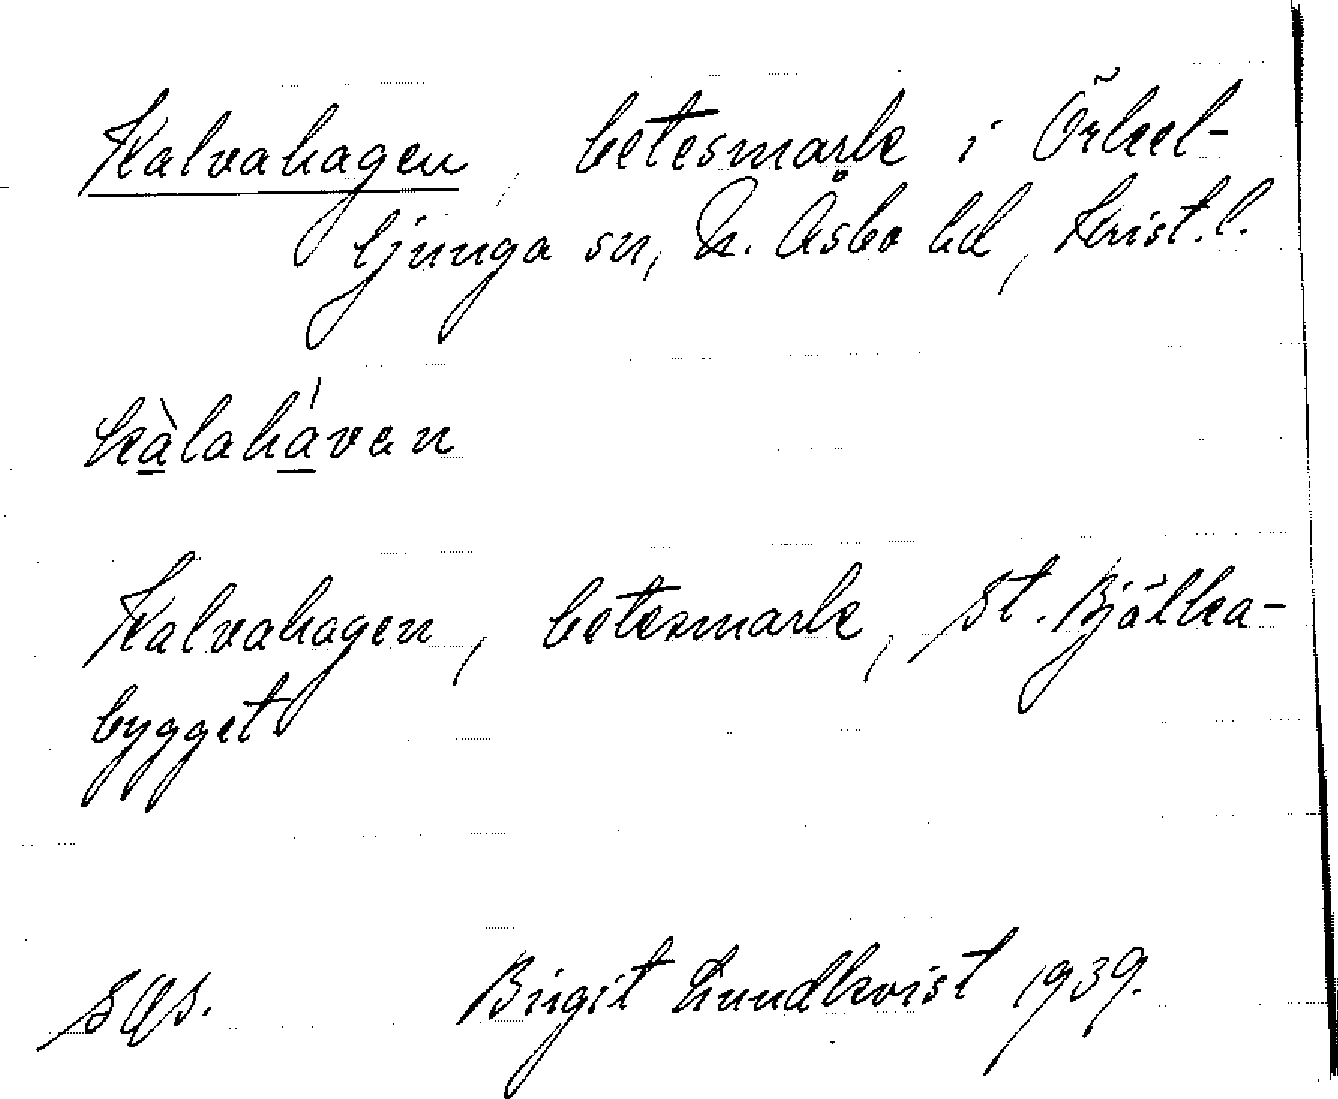 Kalvahagen, betesmark i Örkel-
ljunga sn, N. Åsbo hd, Krist. l.
kàlahávan
Kalvahagen, betesmark, St. Bjälka-
bygget
Birgit Lundkvist 1939.